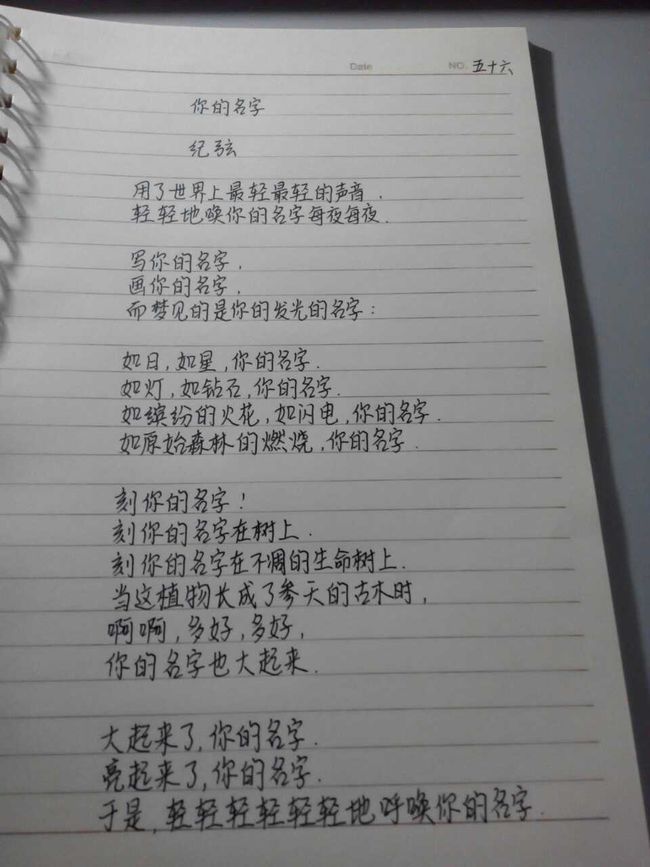 Date NO. 五十六
你的名字
纪弦
用了世界上最轻最轻的声音.
轻轻地唤你的名字每夜每夜.
写你的名字,
画你的名字,
而梦见的是你的发光的名字:
如日,如星,你的名字.
如灯,如钻石,你的名字.
如缤纷的火花,如闪电,你的名字.
如原始森林的燃烧,你的名字.
刻你的名字!
刻你的名字在树上.
刻你的名字在不凋的生命树上.
当这植物长成了参天的古木时,
啊啊,多好,多好,
你的名字也大起来.
大起来了,你的名字.
亮起来了,你的名字.
于是,轻轻轻轻轻轻地呼唤你的名字.